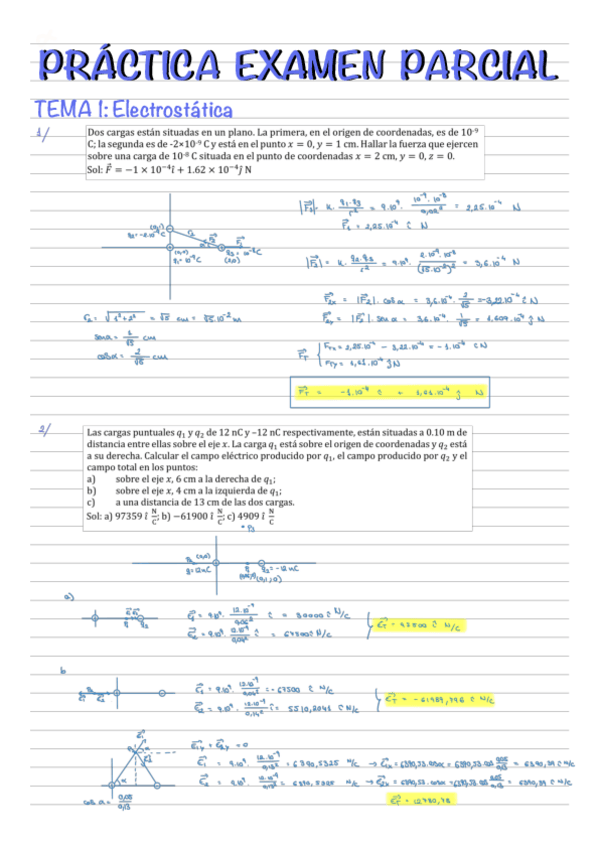 PRÁCTICA EXAMEN PARCIAL
TEMA 1: Electrostática
1/
Dos cargas están situadas en un plano. La primera, en el origen de coordenadas, es de 10⁻⁹
C; la segunda es de -2×10⁻⁹ C y está en el punto x = 0, y = 1 cm. Hallar la fuerza que ejercen
sobre una carga de 10⁻⁸ C situada en el punto de coordenadas x = 2 cm, y = 0, z = 0.
Sol: F⃗ = −1 × 10⁻⁴î + 1.62 × 10⁻⁴ĵ N
|F₁| = K · q₁·q₃/r² = 9·10⁹ · 10⁻⁹·10⁻⁸/0,02² = 2,25·10⁻⁴ N
F₁ = 2,25·10⁻⁴ î N
(0,1)
q₂ = -2·10⁻⁹ C
(0,0)
q₁ = 10⁻⁹ C
q₃ = 10⁻⁸ C
(2,0)
|F₂| = K · q₂·q₃/r² = 9·10⁹ · 2·10⁻⁹·10⁻⁸/(√5·10⁻²)² = 3,6·10⁻⁴ N
F₂ₓ = |F₂| · cos α = 3,6·10⁻⁴ · 2/√5 = -3,22·10⁻⁴ î N
r₂ = √1²+2² = √5 cm = √5·10⁻² m
F₂y = |F₂| · sen α = 3,6·10⁻⁴ · 1/√5 = 1,609·10⁻⁴ ĵ N
sen α = 1/√5 cm
cos α = 2/√5 cm
F_T { F_Tx = 2,25·10⁻⁴ − 3,22·10⁻⁴ = −1·10⁻⁴ î N
F_Ty = 1,61·10⁻⁴ ĵ N
F_T = −1·10⁻⁴ î + 1,61·10⁻⁴ ĵ N
2/
Las cargas puntuales q₁ y q₂ de 12 nC y –12 nC respectivamente, están situadas a 0.10 m de
distancia entre ellas sobre el eje x. La carga q₁ está sobre el origen de coordenadas y q₂ está
a su derecha. Calcular el campo eléctrico producido por q₁, el campo producido por q₂ y el
campo total en los puntos:
a) sobre el eje x, 6 cm a la derecha de q₁;
b) sobre el eje x, 4 cm a la izquierda de q₁;
c) a una distancia de 13 cm de las dos cargas.
Sol: a) 97359 î N/C; b) −61900 î N/C; c) 4909 î N/C
(0,0)
q = 12 nC
q₂ = -12 nC
(0,1, 0)
a)
E₁ = 9·10⁹ · 12·10⁻⁹/0,06² î = 30000 î N/C
E₂ = 9·10⁹ · 12·10⁻⁹/0,04² î = 67500 î N/C
E_T = 97500 î N/C
b
E₁ = 9·10⁹ · 12·10⁻⁹/0,04² = -67500 î N/C
E₂ = 9·10⁹ · 12·10⁻⁹/0,14² î = 5510,2041 î N/C
E_T = -61989,796 î N/C
E₁y + E₂y = 0
E₁ = 9·10⁹ · 12·10⁻⁹/0,13² = 6390,5325 N/C
cos α = 0,05/0,13
E_T = 12780,78